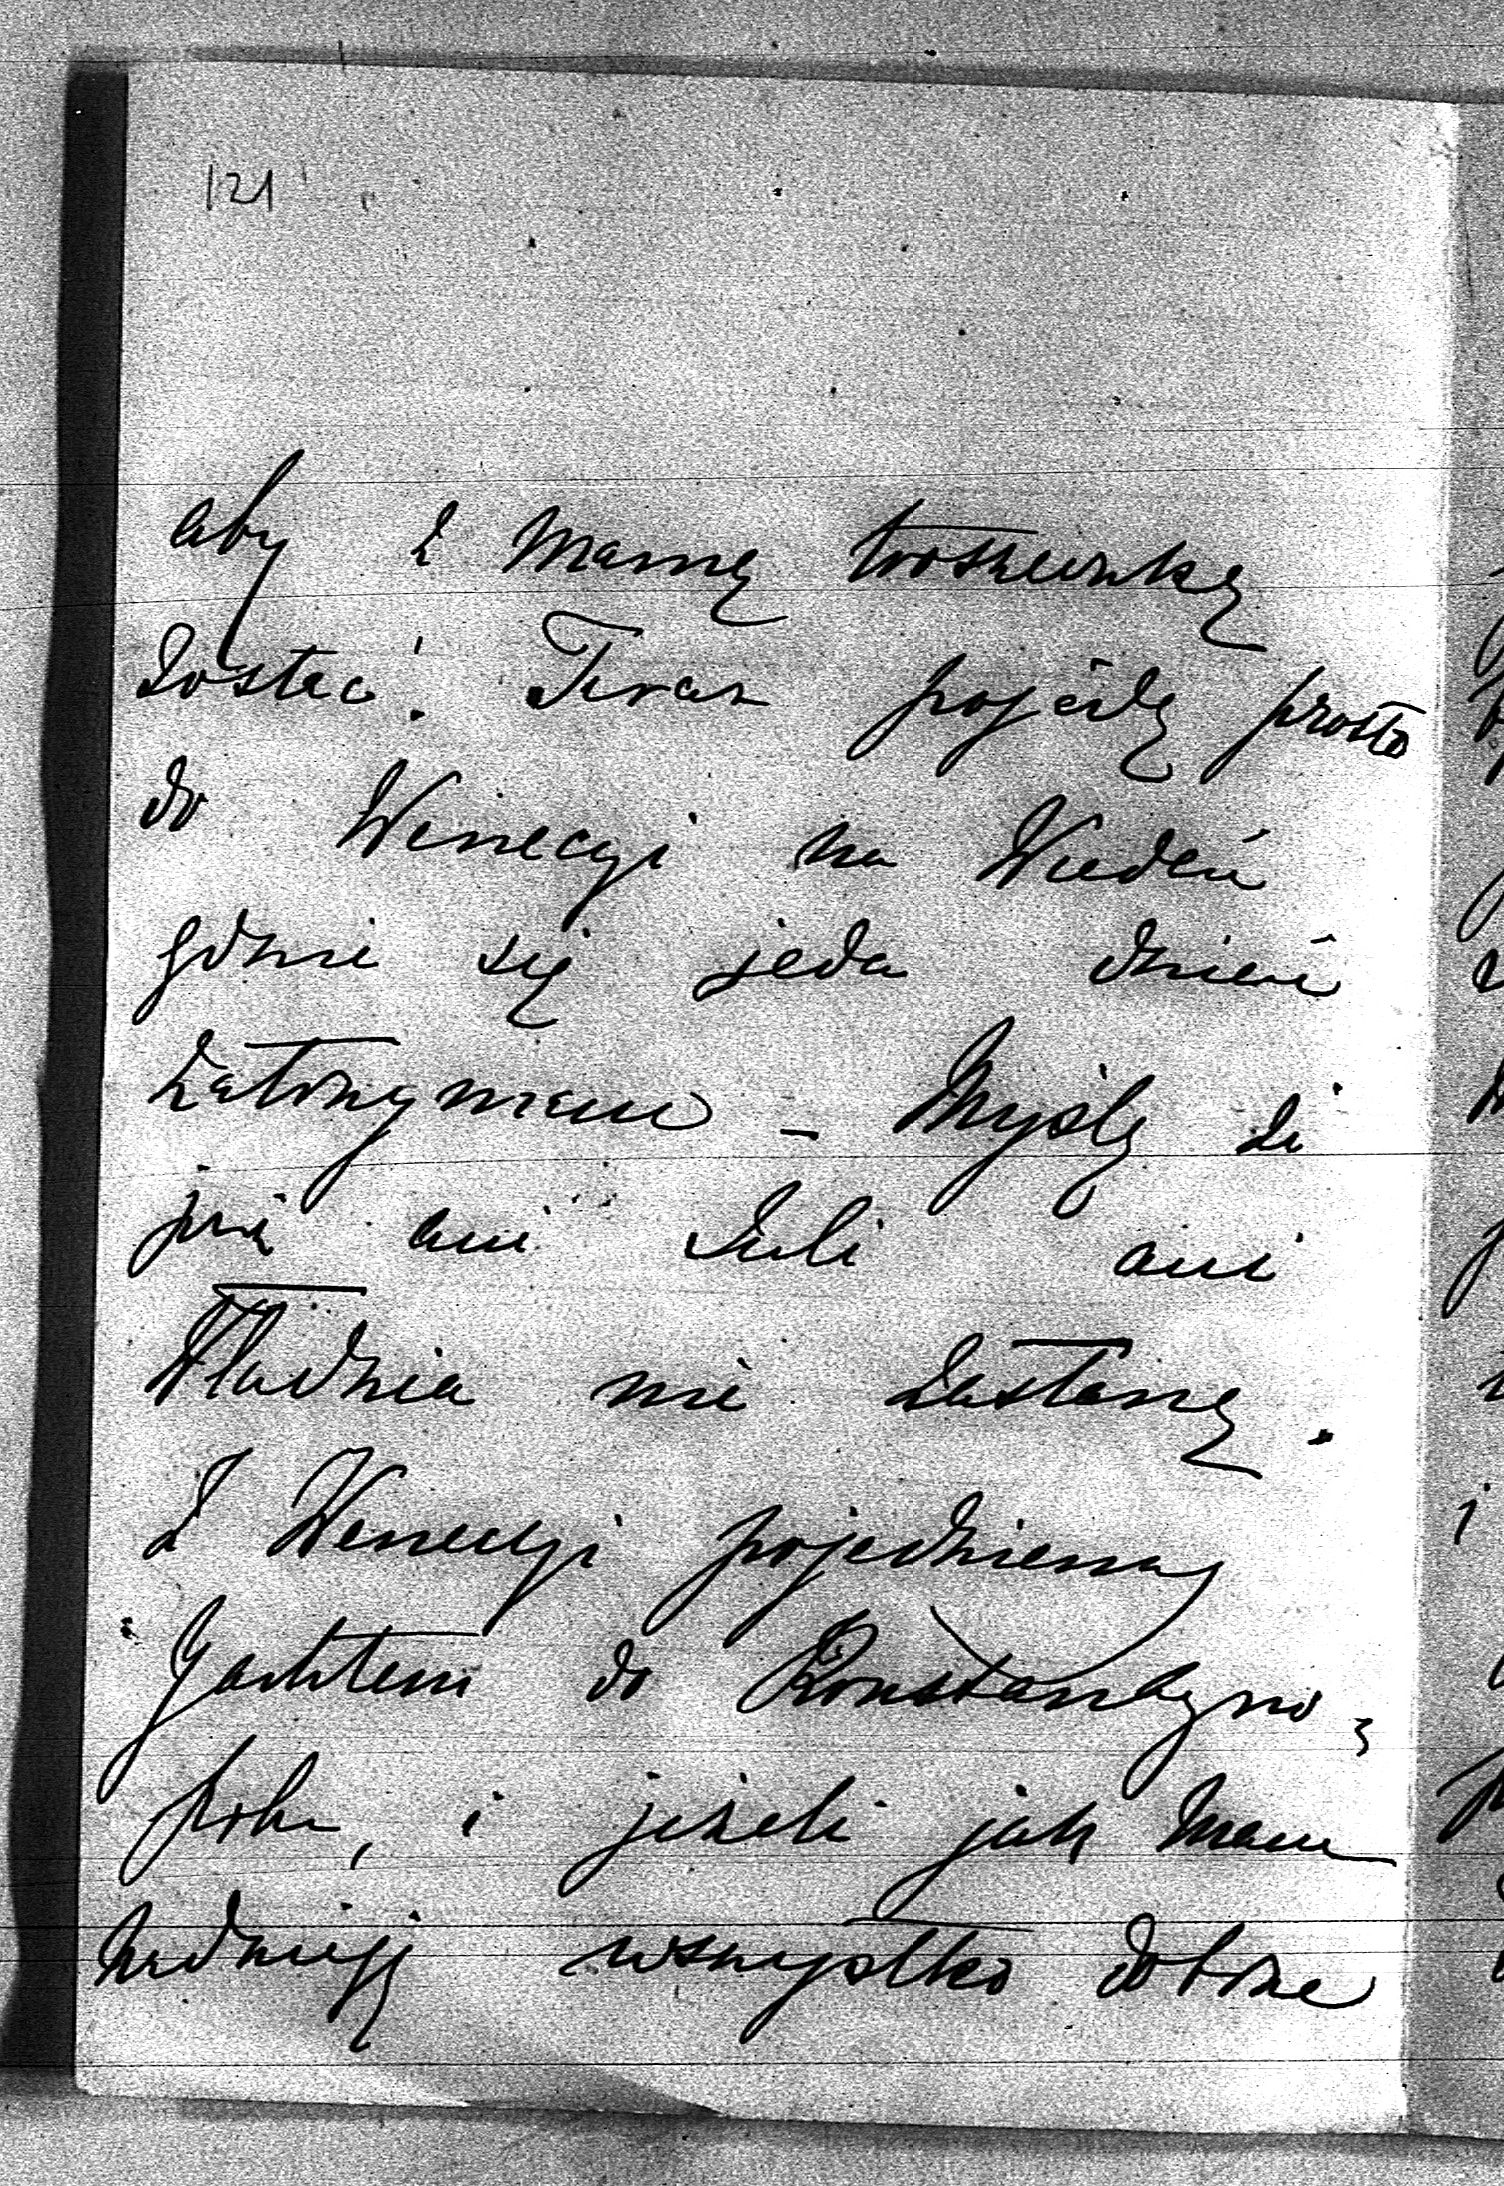 121
aby z Mamą troszeczkę
zostać. Teraz pojadę prosto
do Wenecyi na Wiedeń
gdzie się jeda dzień
zatrzymam – Myślę że
już ani Juli ani
Władzia nie zastanę.
Z Wenecyi pojedziemy
Yachtem do Konstantyno-
pola, i jeżeli jak mam
nadzieję wszystko dobrze